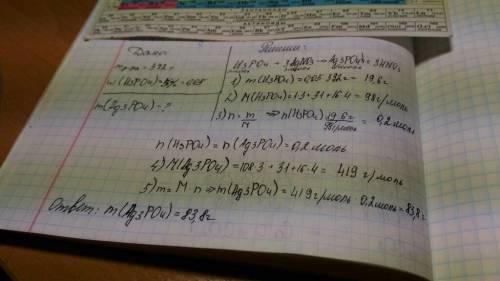 Дано:
Решение:
m р-ра = 392г
w(H3PO4) = 5% = 0.05
m(Ag3PO4) = ?
H3PO4 + 3AgNO3 → Ag3PO4 + 3HNO3
1) m(H3PO4) = 0.05 · 392г = 19.6г
2) M(H3PO4) = 1·3 + 31 + 16·4 = 98г/моль
3) n = m/M ⇒ n(H3PO4) 19,6г/98г/моль = 0,2моль
n(H3PO4) = n(Ag3PO4) = 0,2моль
4) M(Ag3PO4) = 108·3 + 31 + 16·4 = 419г/моль
5) m = M·n ⇒ m(Ag3PO4) = 419г/моль · 0,2моль = 83,8г
Ответ: m(Ag3PO4) = 83,8г